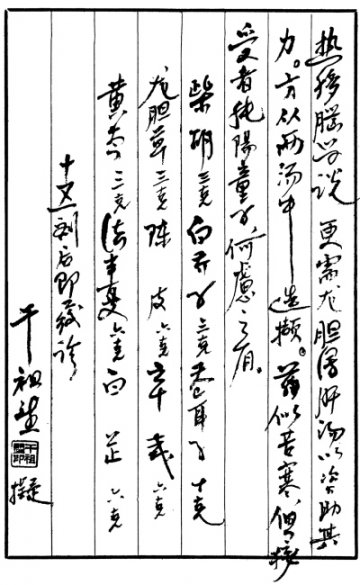 热移脑学说 更需龙胆泻肝汤以资助其
力。方从两汤中选撷。药似苦寒,但接
受者纯阳童子,何虑之有。
柴胡三克 白芥子三克 苍耳子十克
龙胆草三克 陈皮六克 辛夷六克
黄芩三克 法半夏六克 白芷六克
剂后即诊
干祖望 拟